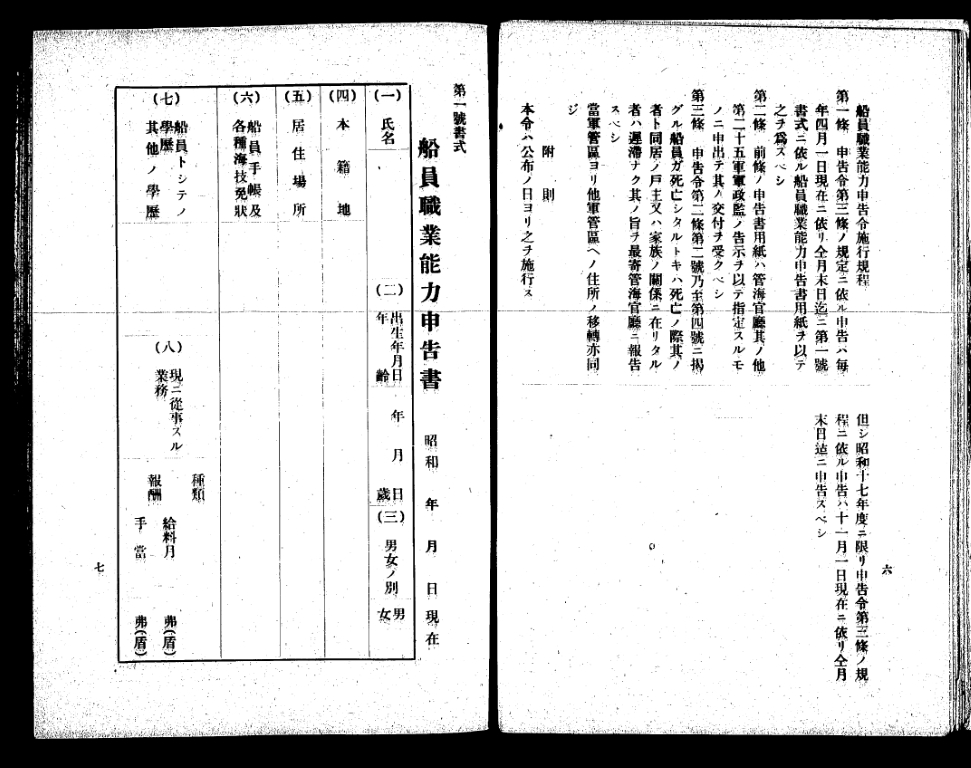 船員職業能力申告令施行規程
第一條　申告令第三條ノ規定ニ依ル申告ハ每
年四月一日現在ニ依リ仝月末日迄ニ第一號
書式ニ依ル船員職業能力申告書用紙ヲ以テ
之ヲ爲スベシ
第二條　前條ノ申告書用紙ハ管海官廳其ノ他
第二十五軍軍政監ノ告示ヲ以テ指定スルモ
ノニ申出テ其ノ交付ヲ受クベシ
第三條　申告令第二條第二號乃至第四號ニ揭
グル船員ガ死亡シタルトキハ死亡ノ際其ノ
者ト同居ノ戶主又ハ家族ノ關係ニ在リタル
者ハ遲滯ナク其ノ旨ヲ最寄管海官廳ニ報告
スベシ
當軍管區ヨリ他軍管區ヘノ住所ノ移轉亦同
ジ
附則
本令ハ公布ノ日ヨリ之ヲ施行ス
但シ昭和十七年度ニ限リ申告令第三條ノ規
程ニ依ル申告ハ十一月一日現在ニ依リ仝月
末日迄ニ申告スベシ
六
第一號書式
船員職業能力申告書　昭和　年　月　日現在
(一)　氏名
(二)　出生年月日　年　月　日
年齡　歲
(三)　男女ノ別　男
女
(四)　本籍地
(五)　居住場所
(六)　船員手帳及
各種海技免狀
(七)　船員トシテノ
學歷
其他ノ學歷
(八)　現ニ從事スル
業務
種類
報酬
給料月　弗(盾)
手當　弗(盾)
七